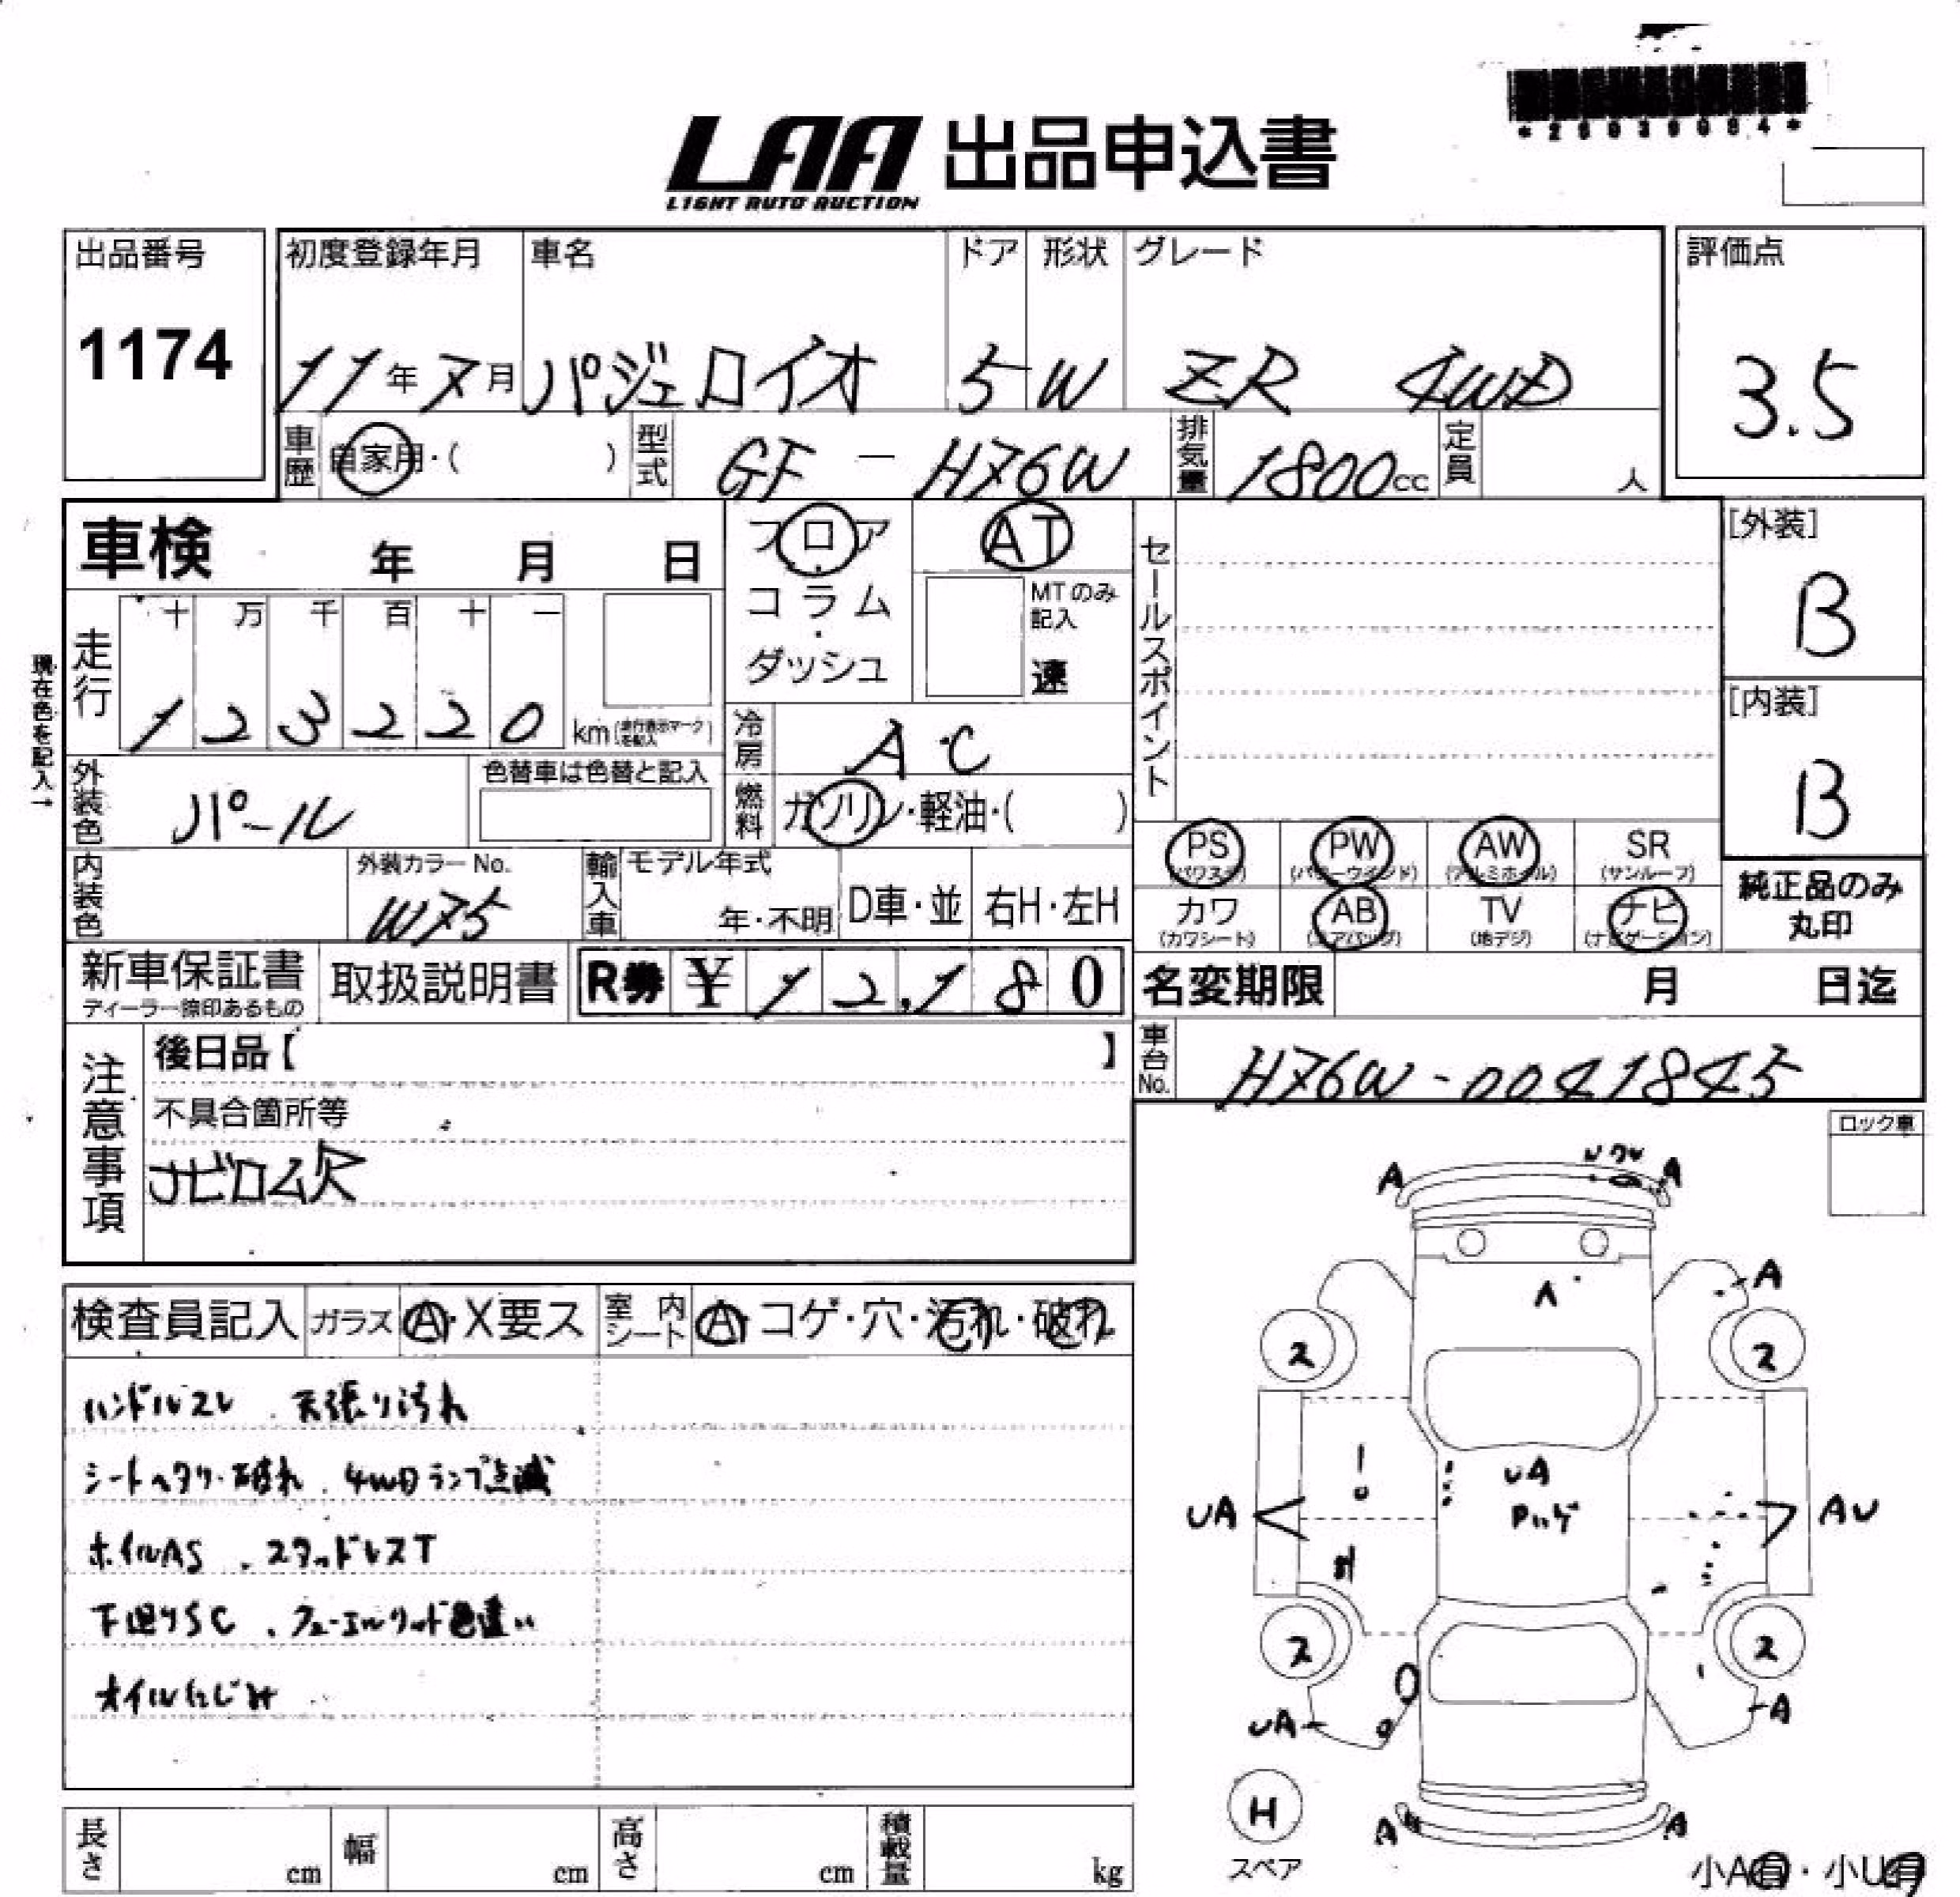 LAA 出品申込書
LIGHT AUTO AUCTION
出品番号
1174
初度登録年月 車名 ドア 形状 グレード
11年 7月 パジェロイオ 5 W ZR 4WD
評価点
3.5
車歴 自家用・( ) 型式 GF - H76W 排気量 1800cc 定員 人
車検 年 月 日
フロア
コラム
・
ダッシュ
AT
MTのみ
記入
速
走行 十 万 千 百 十 一
1 2 3 2 2 0 km
現在色を記入→
冷房 A・C
燃料 ガソリン・軽油・( )
外装色 パール
色替車は色替と記入
内装色
外装カラーNo.
W75
輸入車 モデル年式
年・不明 D車・並 右H・左H
セールスポイント
[外装]
B
[内装]
B
PS PW AW SR
(パワステ) (パワーウインド) (アルミホイル) (サンルーフ)
カワ AB TV ナビ
(カワシート) (エアバッグ) (地デジ) (ナビゲーション)
純正品のみ
丸印
新車保証書
取扱説明書 R券 ¥ 12,180
名変期限 月 日迄
車台No. H76W-0041845
注意事項
後日品【 】
不具合箇所等
ナビロム欠
ロック車
検査員記入 ガラス A・X要ス 室内シート A・コゲ・穴・汚れ・破れ
ハンドルスレ . 天張り汚れ
シートヘタリ・破れ . 4WDランプ点滅
ホイルAS . スタッドレスT
下廻りSC . フューエルリッド色違い
オイルにじみ
A A
A
A
ス ス
UA
UA AU
ス ス
UA A
H
スペア
A A
小A有・小U有
長さ cm 幅 cm 高さ cm 積載量 kg